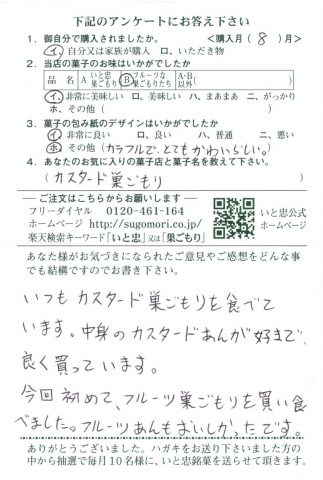 下記のアンケートにお答え下さい
1. 御自分で購入されましたか。 <購入月( 8 )月>
イ、自分又は家族が購入 ロ、いただき物
2. 当店の菓子のお味はいかがでしたか
品 名 A いと忠巣ごもり B フルーツな巣ごもりたち A・B以外( )
イ、非常に美味しい ロ、美味しい ハ、まあまあ ニ、がっかり
ホ、その他( )
3. 菓子の包み紙のデザインはいかがですか
イ、非常に良い ロ、良い ハ、普通 ニ、悪い
ホ、その他( カラフルで、とてもかわいらしい。 )
4. あなたのお気に入りの菓子店と菓子名を教えて下さい。
( カスタード巣ごもり )
―ご注文はこちらからお願いします―
フリーダイヤル 0120-461-164
ホームページ http://sugomori.co.jp/
楽天検索キーワード「いと忠」又は「巣ごもり」
いと忠公式
ホームページ
あなた様がお気づきになられたご意見やご感想をどんな事
でも結構ですのでお書き下さい。
いつもカスタード巣ごもりを食べて
います。中身のカスタードあんが好きで、
良く買っています。
今回初めて、フルーツ巣ごもりを買い食
べました。フルーツあんもおいしかったです。
ありがとうございました。ハガキをお送り下さいました方の
中から抽選で毎月10名様に、いと忠銘菓を送らせて頂きます。